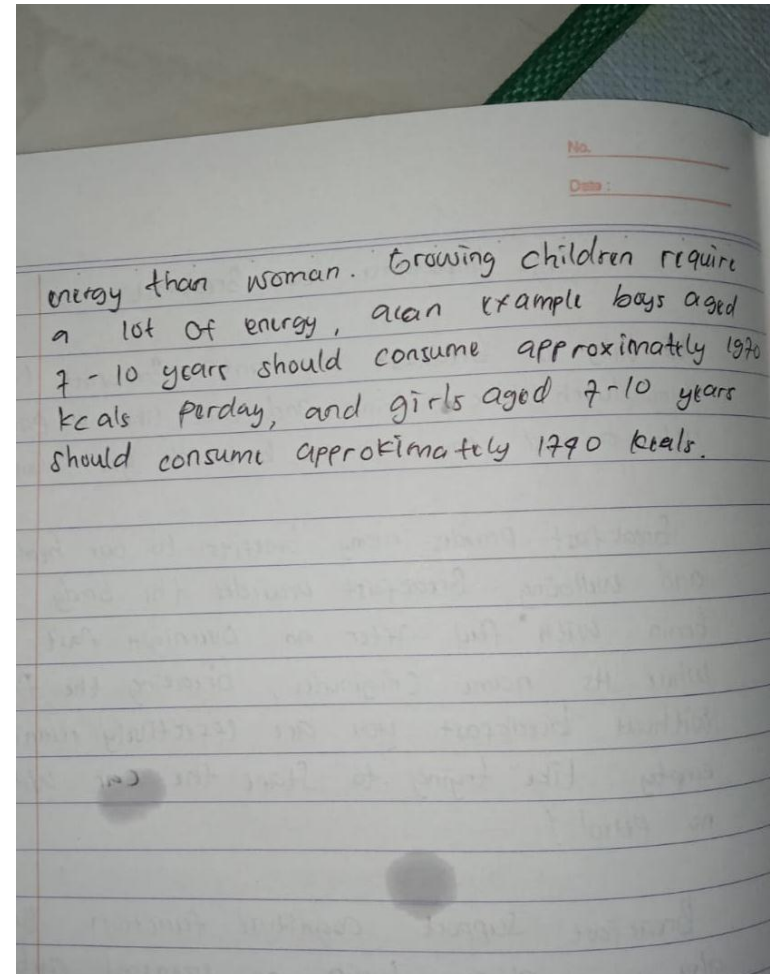 No.
Date :
energy than woman. Growing children require
a lot of energy, as an example boys aged
7-10 years should consume approximately 1970
kcals perday, and girls aged 7-10 years
should consume approkimately 1740 kcals.